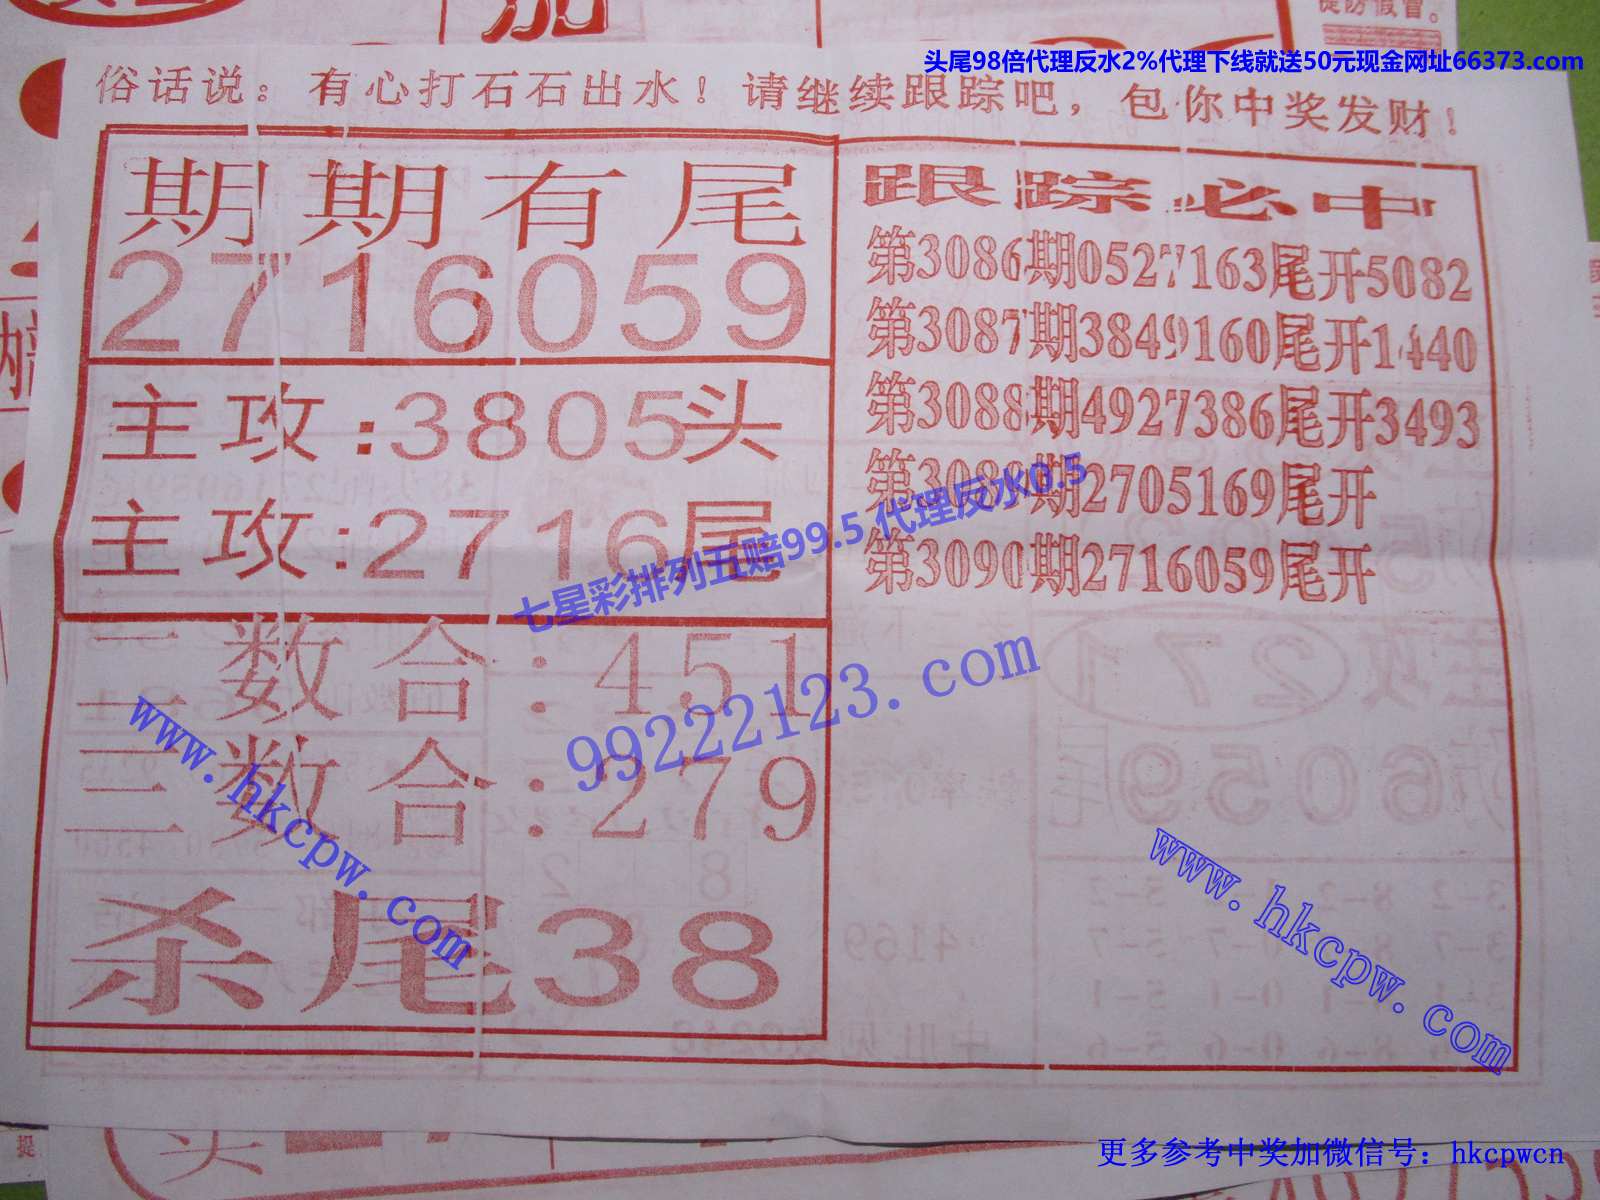 加
提防假冒。
头尾98倍代理反水2%代理下线就送50元现金网址66373.com
俗话说：有心打石石出水！请继续跟踪吧，包你中奖发财！
期期有尾
2716059
主攻:3805头
主攻:2716尾
二数合:451
三数合:279
杀尾38
跟踪必中
第3086期0527163尾开5082
第3087期3849160尾开1440
第3088期4927386尾开3493
期2705169尾开
第3090期2716059尾开
七星彩排列五赔99.5 代理反水0.5
99222123.com
www.hkcpw.com
www.hkcpw.com
更多参考中奖加微信号：hkcpwcn